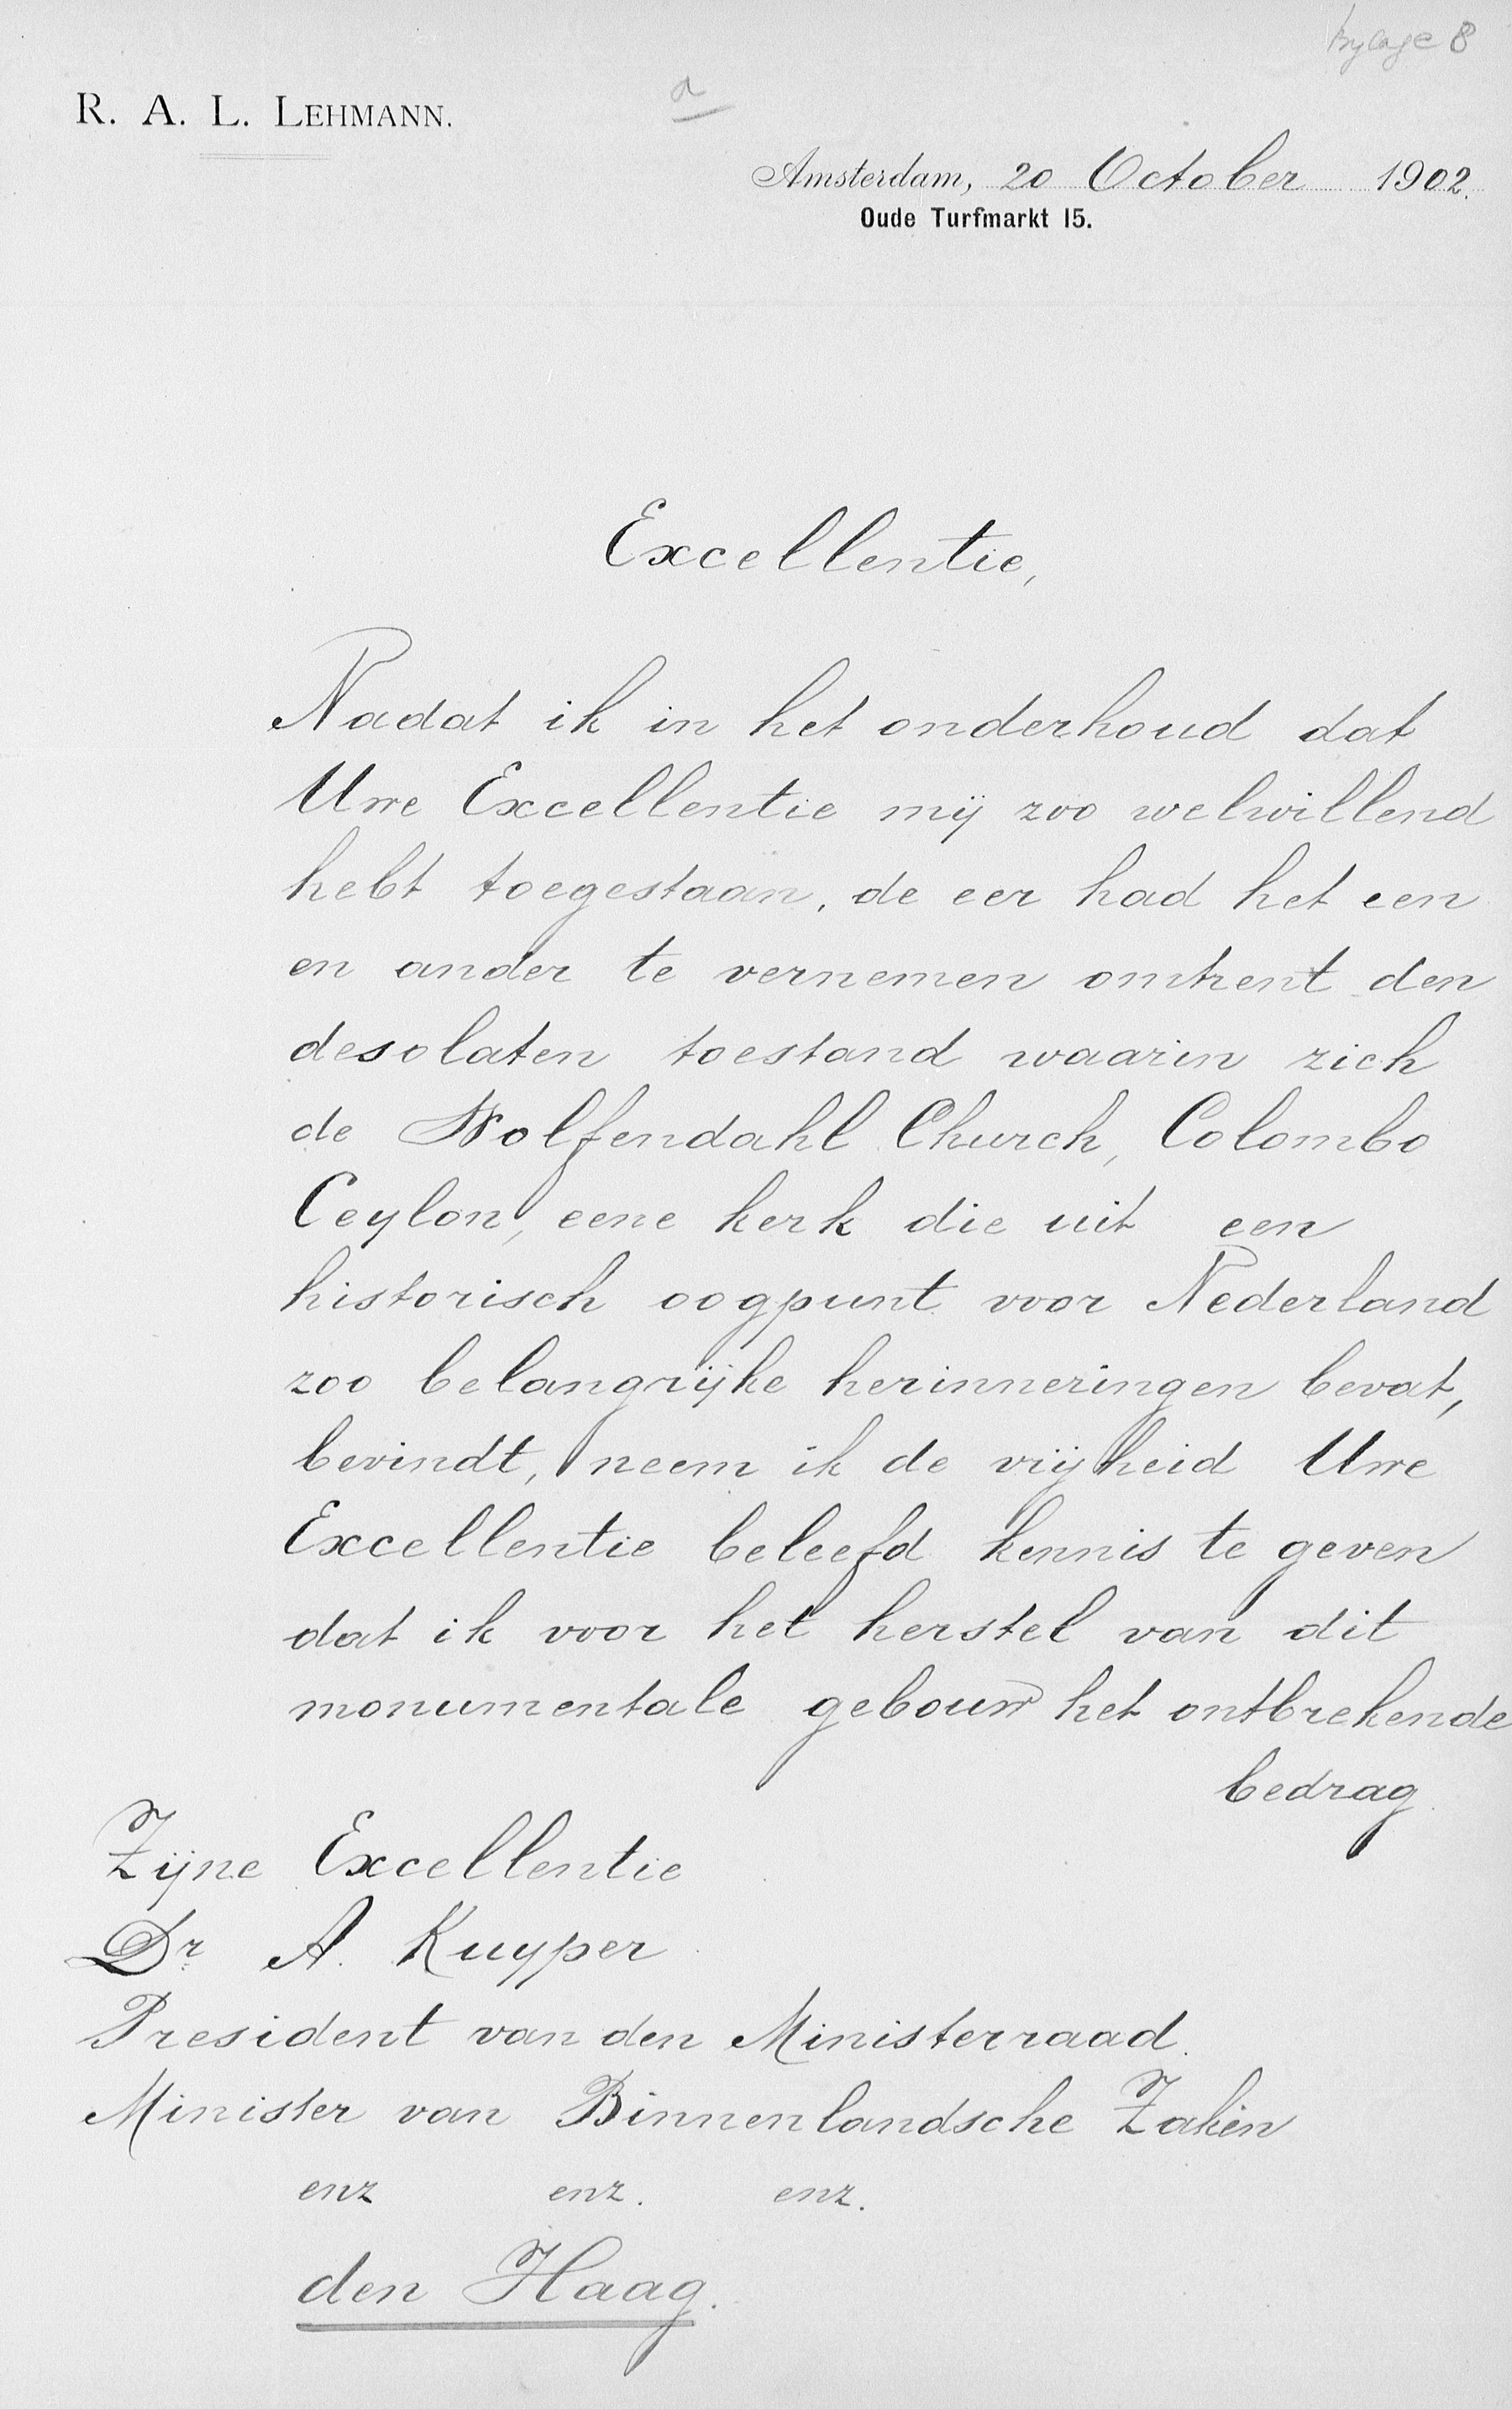 bylage 8
a
R. A. L. LEHMANN.
Amsterdam, 20 October 1902.
Oude Turfmarkt 15.
Excellentie,
Nadat ik in het onderhoud dat
Uwe Excellentie mij zoo welwillend
hebt toegestaan, de eer had het een
en ander te vernemen omtrent den
desolaten toestand waarin zich
de Wolfendahl Church, Colombo
Ceylon, eene kerk die uit een
historisch oogpunt voor Nederland
zoo belangrijke herinneringen bevat,
bevindt, neem ik de vrijheid Uwe
Excellentie beleefd kennis te geven
dat ik voor het herstel van dit
monumentale gebouw het ontbrekende
bedrag
Zijne Excellentie
Dr. A. Kuyper
President van den Ministerraad.
Minister van Binnenlandsche Zaken
enz enz. enz.
den Haag.